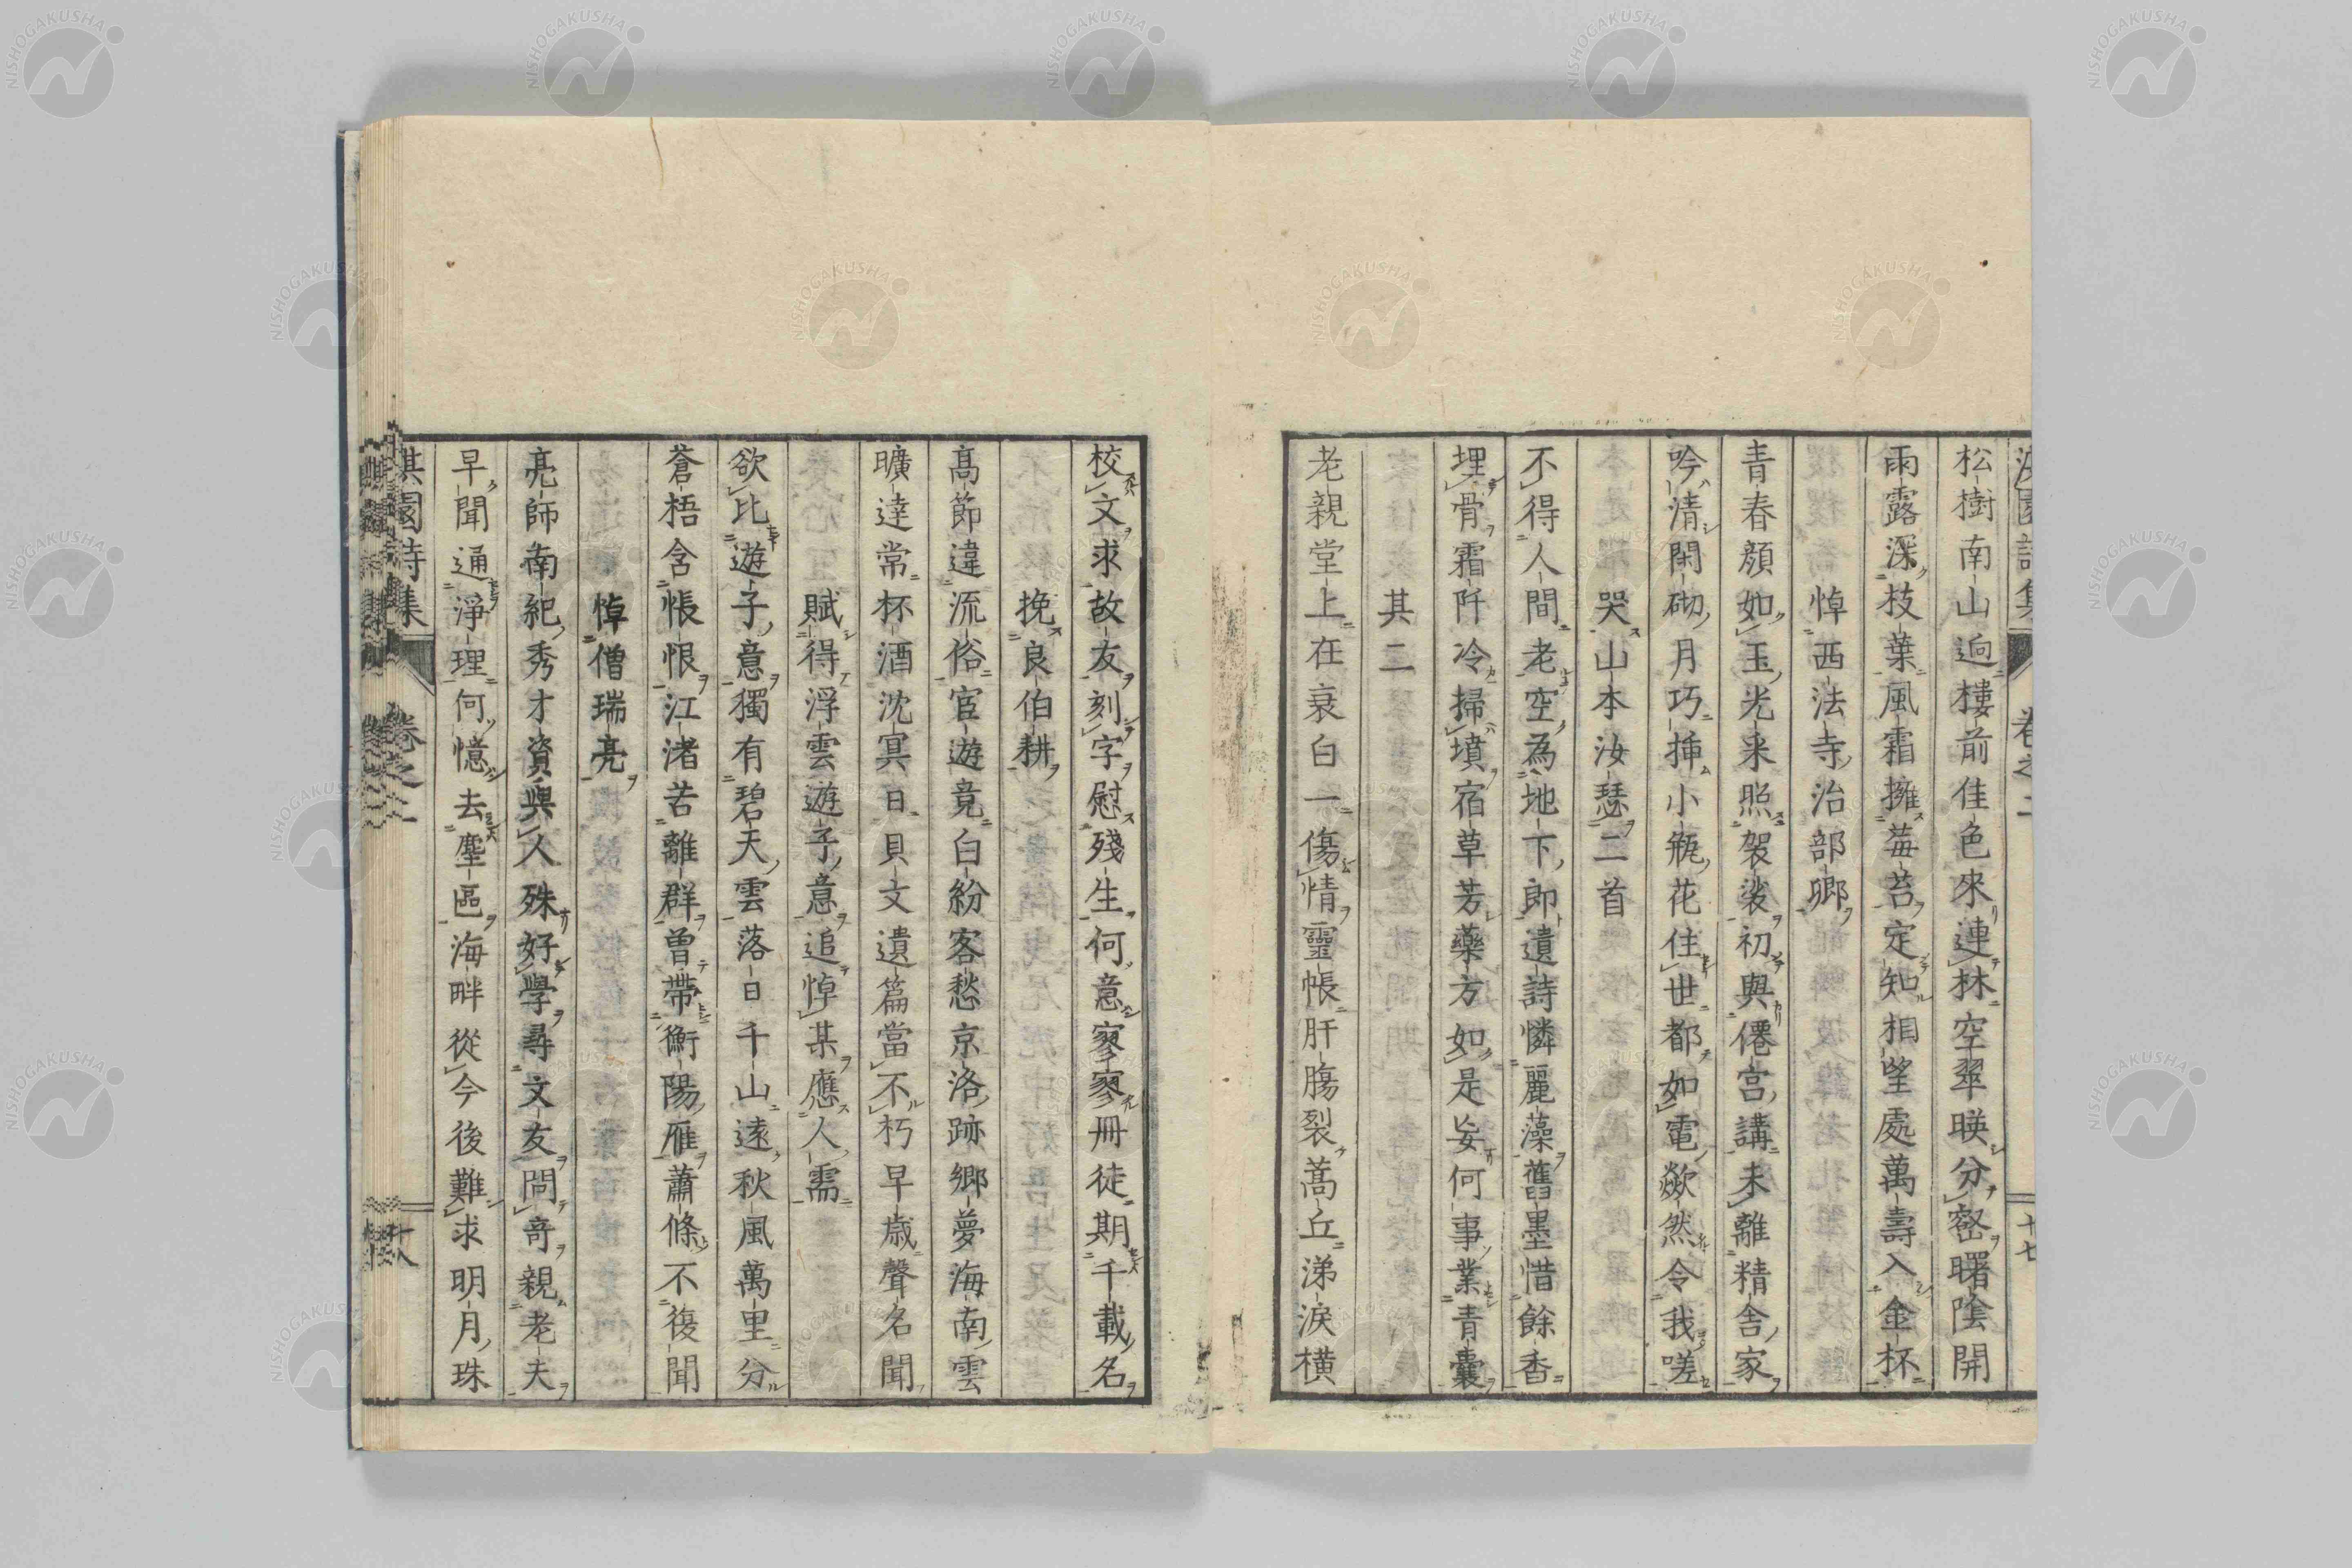 淇園詩集 卷之二 十七
松樹南山逈樓前佳色來連林空翠暎分密曙陰開
雨露深枝葉風霜擁莓苔定知相望處萬壽入金杯
悼西法寺治部卿
青春顔如玉光采照袈裟初與僊宫講未離精舎家
吟清閑砌月巧挿小瓶花住世都如電歘然令我嗟
哭山本汝瑟二首
不得人間老空為地下郎遺詩憐麗藻舊墨惜餘香
埋骨霜阡冷掃墳宿草芳藥方如是妄何事業青囊
其二
老親堂上在衰白一傷情靈帳肝膓裂蒿丘涕淚横
校文求故友刻字慰殘生何意寥寥冊徒期千載名
挽良伯耕
髙節違流俗宦遊竟白紛客愁京洛跡鄉夢海南雲
曠達常杯酒沈冥日貝文遺篇當不朽早歳聲名聞
賦得浮雲遊子意追悼某應人需
欲比遊子意獨有碧天雲落日千山逺秋風萬里分
蒼梧含悵恨江渚苦離群曽帶衡陽雁蕭條不復聞
悼僧瑞亮
亮師南紀秀才資與人殊好學尋文友問奇親老夫
早聞通淨理何憶去塵區海畔從今後難求明月珠
淇園詩集 卷之二 十八
NISHOGAKUSHA